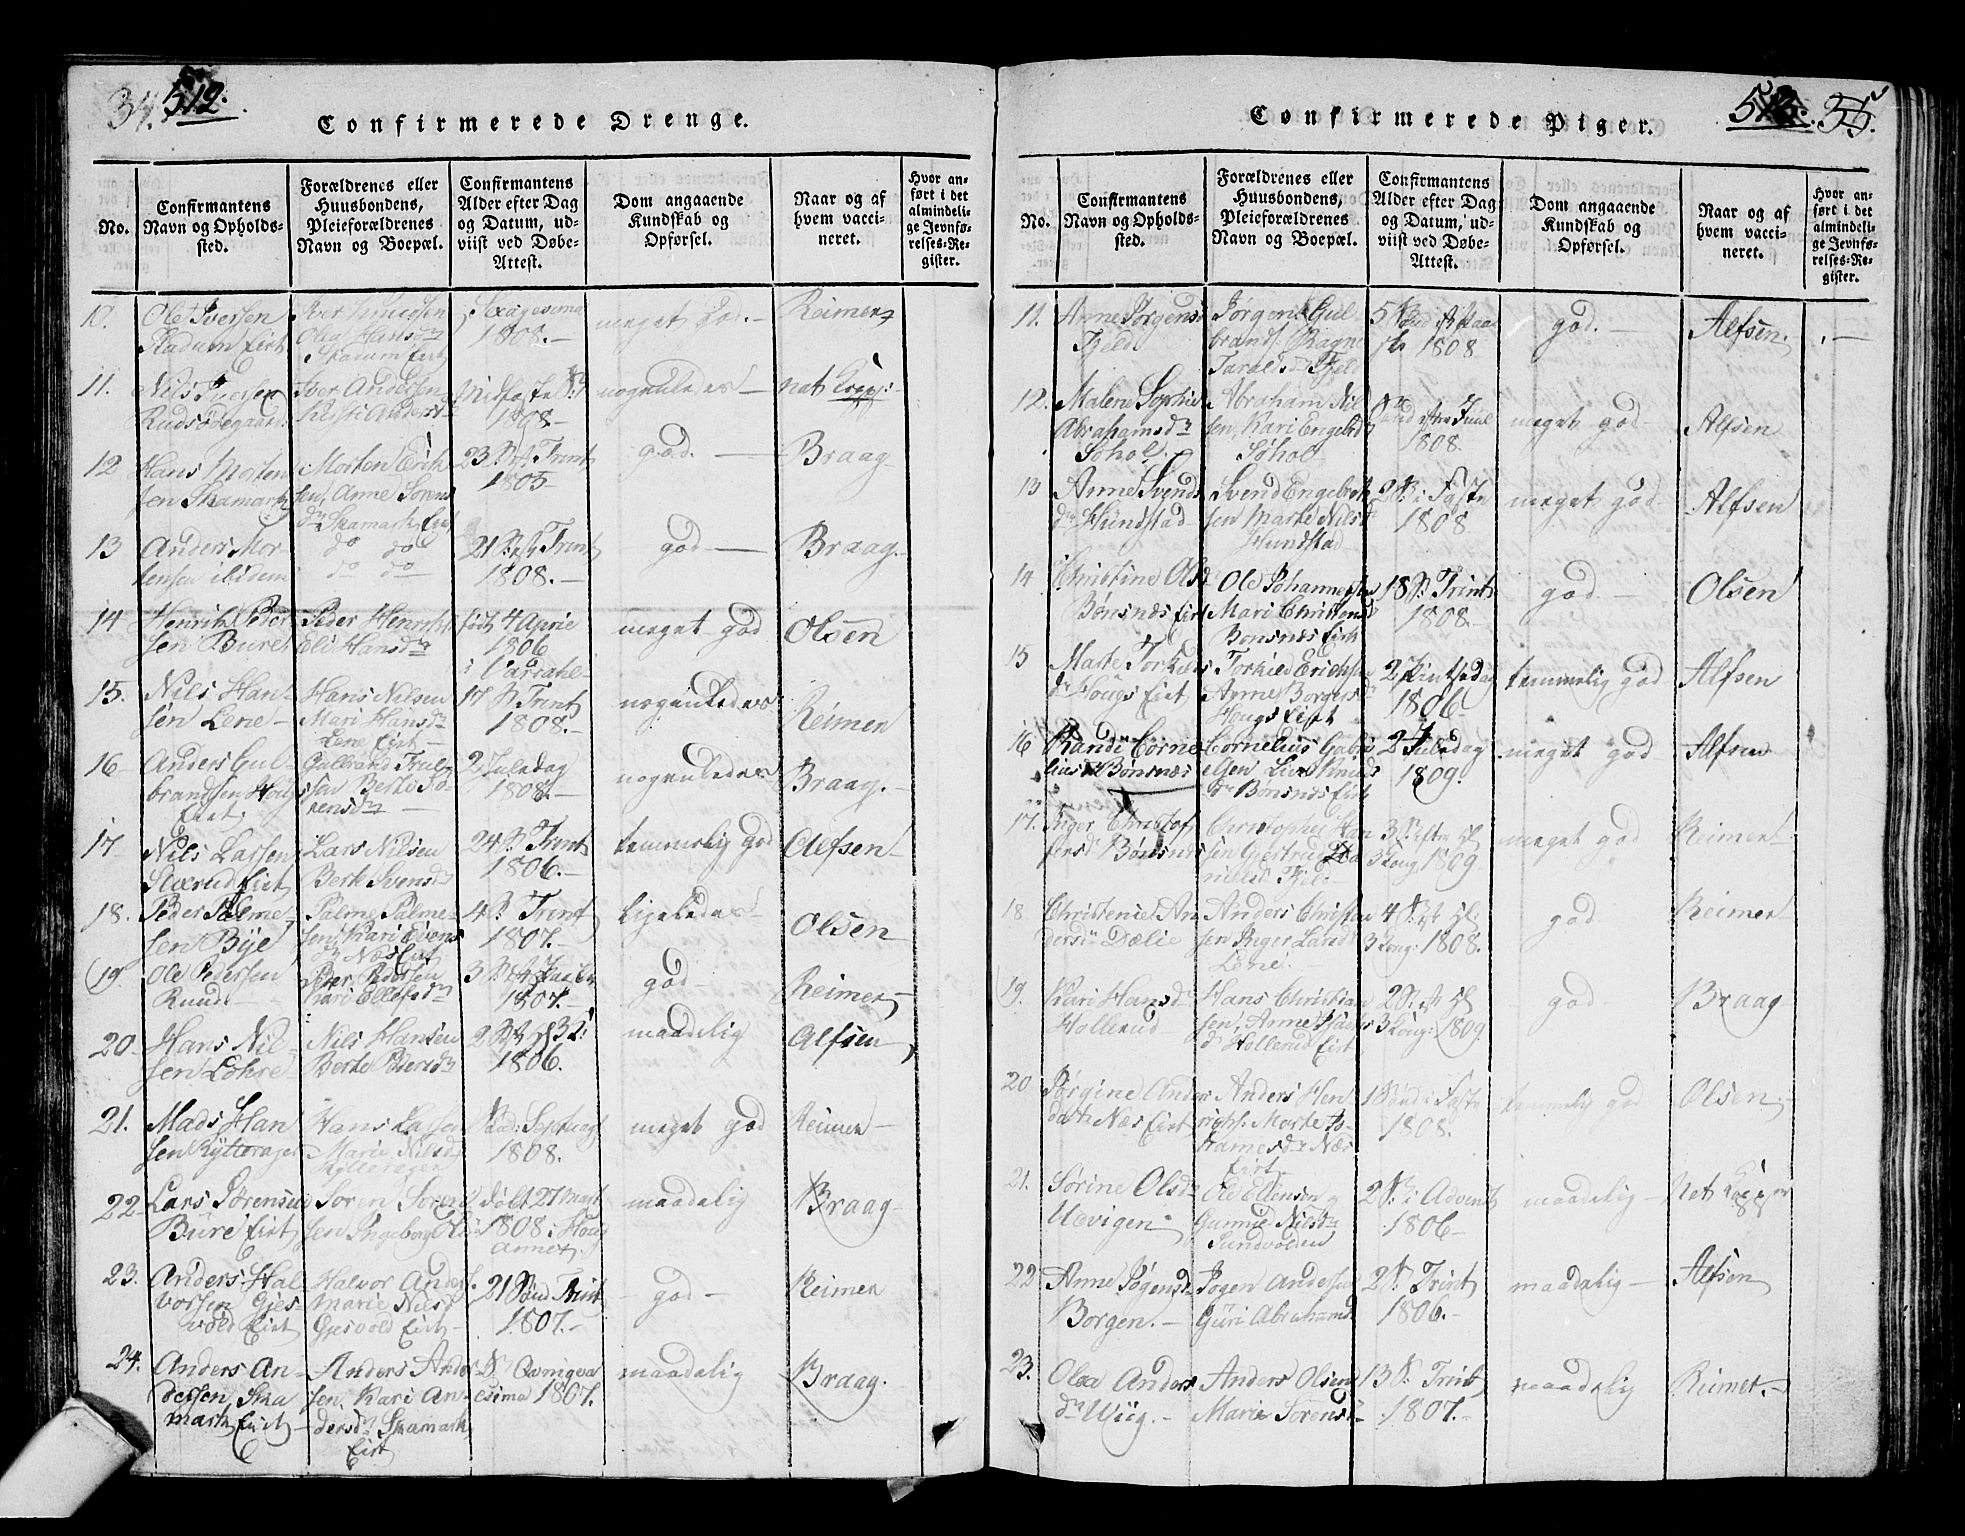 34. 512.
Confirmerede Drenge.
No.
Confirmantens
Navn og Opholds-
sted.
Forældrenes eller
Huusbondens,
Pleieforældrenes
Navn og Boepæl.
Confirmantens
Alder efter Dag
og Datum, ud-
viist ved Døbe-
Attest.
Dom angaaende
Kundskab og
Opførsel.
Naar og af
hvem vacci-
neret.
Hvor an-
ført i det
almindeli-
ge Jevnfø-
relses-Re-
gister.
10.
Ole Iversen
Skadum Eiet
Iver Knudsen
Olea Hansdr
Skadum Eiet
Sexagesima
1808.-
meget God.-
Reimer
11.
Nils Iversen
Rudsødegaard
Iver Andersen
Kirsti Anders
Midfaste
1808-
nogenledes-
nat Kop:
12
Hans Morten
sen Skamark
Morten Erik
sen, Anne Sørens
dr Skamark Eiet
23 S. eft Trint
1805
god.-
Braag
13
Anders Mor-
tensen ibidem
do do
do do
21 S. eft Trint
1808.-
god-
Braag.
14
Henrik Peder
sen Bure
Peder Henrichs
Eli Hansdr
født 4 April
1806
meget god
Olsen
15.
Nils Han-
sen Lene-
Hans Nilsen
Mari Hansdr
Lene Eiet-
17 S. Trint
1808.-
nogenledes
Reimer
16
Anders Gul-
brandsen Houg
Eiet.
Gulbrand Truls
sen Berte Sø-
rensdr
2 Juledag
1808.-
nogenledes
Braag.-
17-
Nils Larsen
Stixrud Eiet
Lars Nilsen
Berte Svensdr
24 S. Trint
1806.-
temmelig god
Olefsen-
18.
Peder Palme-
sen Bÿe
Palme Palme-
sen, Kari Evens
dr Næs Eiet
4 S. Trint
1807.-
ligeledes-
Olsen
19.
Ole Pedersen
Ruud-
Peer Pedersen
Kari Ellefsdr
3 S. eft Paaske
1807.-
god-
Reimer-
20-
Hans Nil-
sen Lohre-
Nils Hansen
Berte Pedersdr
2 S. eft H 3 K:
1806.
maadelig
Alfsen
21.
Mads Han
sen Rytterager
Hans Larsen
Marie Nilsdr
Rytteragen
Sønd: Septuag
1808.
meget god
Reimer-
22-
Lars Sørensen
Bure Eiet
Søren Søren
sen Ingeborg Ols
døbt 27 Mart
1808 i Houg
Annex.
maadelig
Braag-
23.
Anders Hal-
vorsen Gjes-
vold Eiet
Halvor Anders.
Marie Nilsd
Gjesvold Eiet-
21 Sønd Trint
1807.-
-god-
Reimer
24.
Anders An-
dersen Ska
mark Eiet-
Anders Ander
sen. Kari An-
dersdr Skamark
Eiet
S. Qvinqva
esima 1807.
maadelig
Braag.
Confirmerede Piger.
513. 35.
No.
Confirmantens
Navn og Opholds-
sted.
Forældrenes eller
Huusbondens,
Pleieforældrenes
Navn og Boepæl.
Confirmantens
Alder efter Dag
og Datum, ud-
viist ved Døbe-
Attest.
Dom angaaende
Kundskab og
Opførsel.
Naar og af
hvem vacci-
neret.
Hvor an-
ført i det
almindeli-
ge Jevnfø-
relses-Re-
gister.
11.
Anne Jørgens
Fjeld
Jørgen Gul
brands. Ragne
Taraldsdr Fjeld
5 Sønd eft Paas
1808
god.-
Alfsen.
12.
Malene Sophie
Abrahamsdr
Sohol.
Abraham Nil
sen, Kari Engebrd
Sohol
Sønd eftr Juul
1808.
meget god-
Alfsen
13
Anne Svends
dr Hundstad
Svend Engebreth
sen Marte Nilsdr
Hundstad
2 S. i Faste
1808.
meget god.
Alfsen
14
Christine Olsd
Bønsnæs Eiet
Ole Johannesen
Mari Christensd
Bønsnæs Eiet
18 S. Trint
1808.
god.-
Olsen
15
Marte Torkilds
dr Hougs Eiet
Torkild Erichsen
Anne Borgersdr
Hougs Eiet
2 Pintsedag
1806-
temmelig god
Alfsen
16
Randi Corne-
lius dr Bønsnæs
Cornelius Gabri
elsen Lisa Knuds
dr Bønsnæs Eiet
2 Juledag
1809.
meget god
Alfsen
17.
Inger Christof
fersdr Bønsnæs
Christopher Han
sen Gjertrud Da
nielsd. Fjeld
3 S. eftr Hl
3 Kong 1809
meget god
Reimer
18
Christense An
dersdr Dælie
Anders Christen
sen Inger Larsd
Lene
4 S. eft Hl:
3 Kong: 1808.
god
Reimer
19.
Kari Hansdr
Hollerud
Hans Christian
sen, Anne Isachs
dr Hollerud Eiet
2 S. eft Hl
3 Kong: 1809
god
Braag
20
Jørgine Anders
datr Næs Eiet
Anders Hen
richs. Marte To-
stensdr Næs
Eiet-
1 Sønd i Faste
1808.
temmelig god
Olsen
21.
Sørine Olsdr
Udvigen
Ole Ellensen og
Gunnild Nilsdr
Sundvolden
2 S. i Advent
1806-
maadelig-
Nat Kopper
22
Anne Jøgensd
Borgen.-
Jogen Andersen
Guri Abrahams
2 S. Trint
1806.-
maadelig-
Alfsen
23.
Olea Anders
dr Wiig.-
Anders Olsen
Marie Sørensd-
13 S. Trint
1807.-
maadelig
Reimer.-